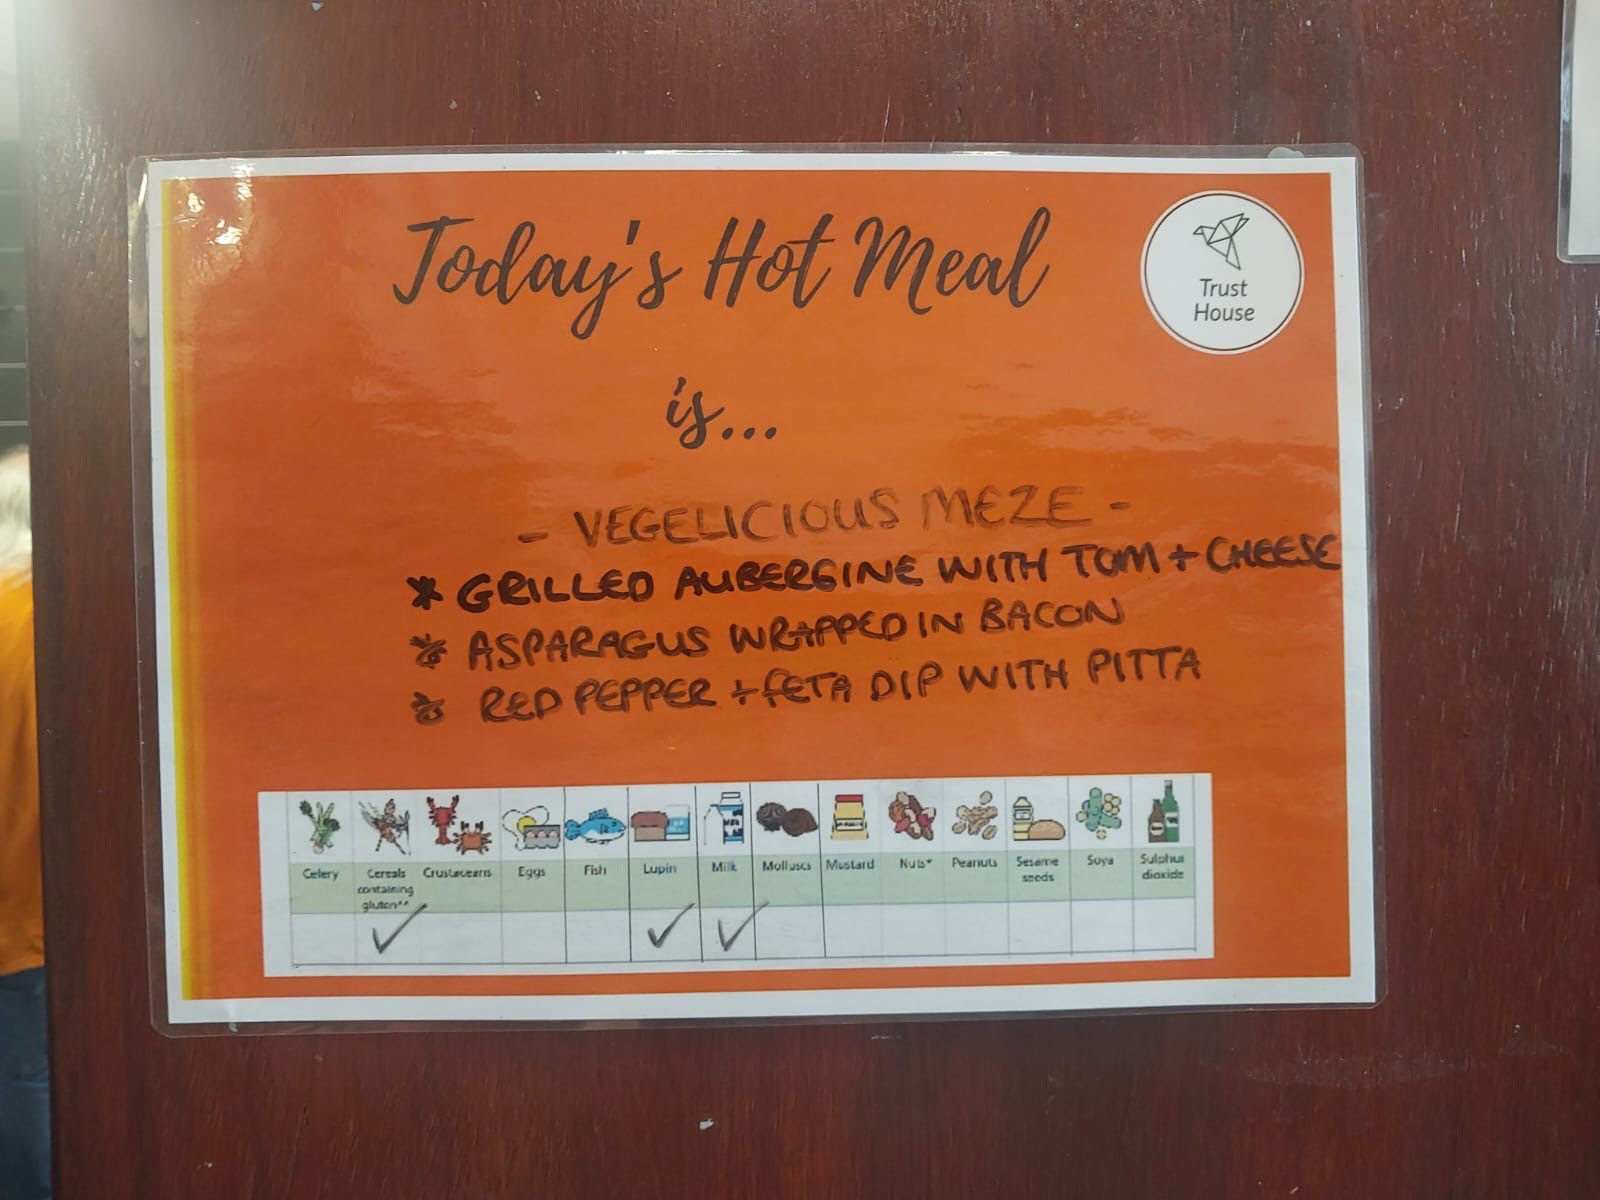 Today's Hot Meal
Trust
House
is...
- VEGELICIOUS MEZE -
* GRILLED AUBERGINE WITH TOM + CHEESE
* ASPARAGUS WRAPPED IN BACON
* RED PEPPER + FETA DIP WITH PITTA
Celery Cereals containing gluten** Crustaceans Eggs Fish Lupin Milk Molluscs Mustard Nuts* Peanuts Sesame seeds Soya Sulphur dioxide
✓ ✓ ✓